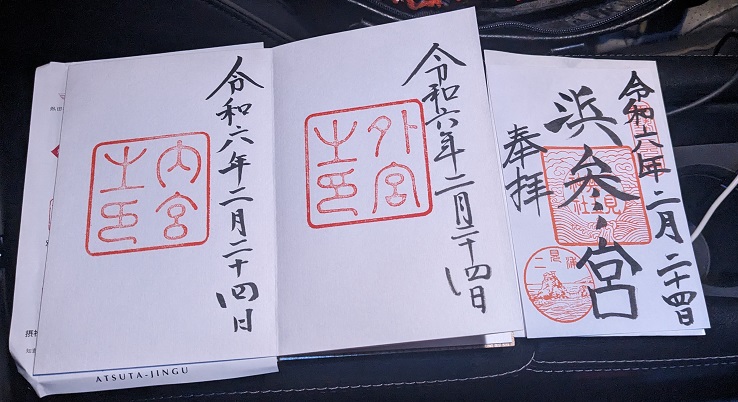 令和六年二月二十四日
内宮
之印
令和六年二月二十四日
外宮
之印
令和六年二月二十四日
浜参宮
奉拝
見
社
二見浦
ATSUTA-JINGU